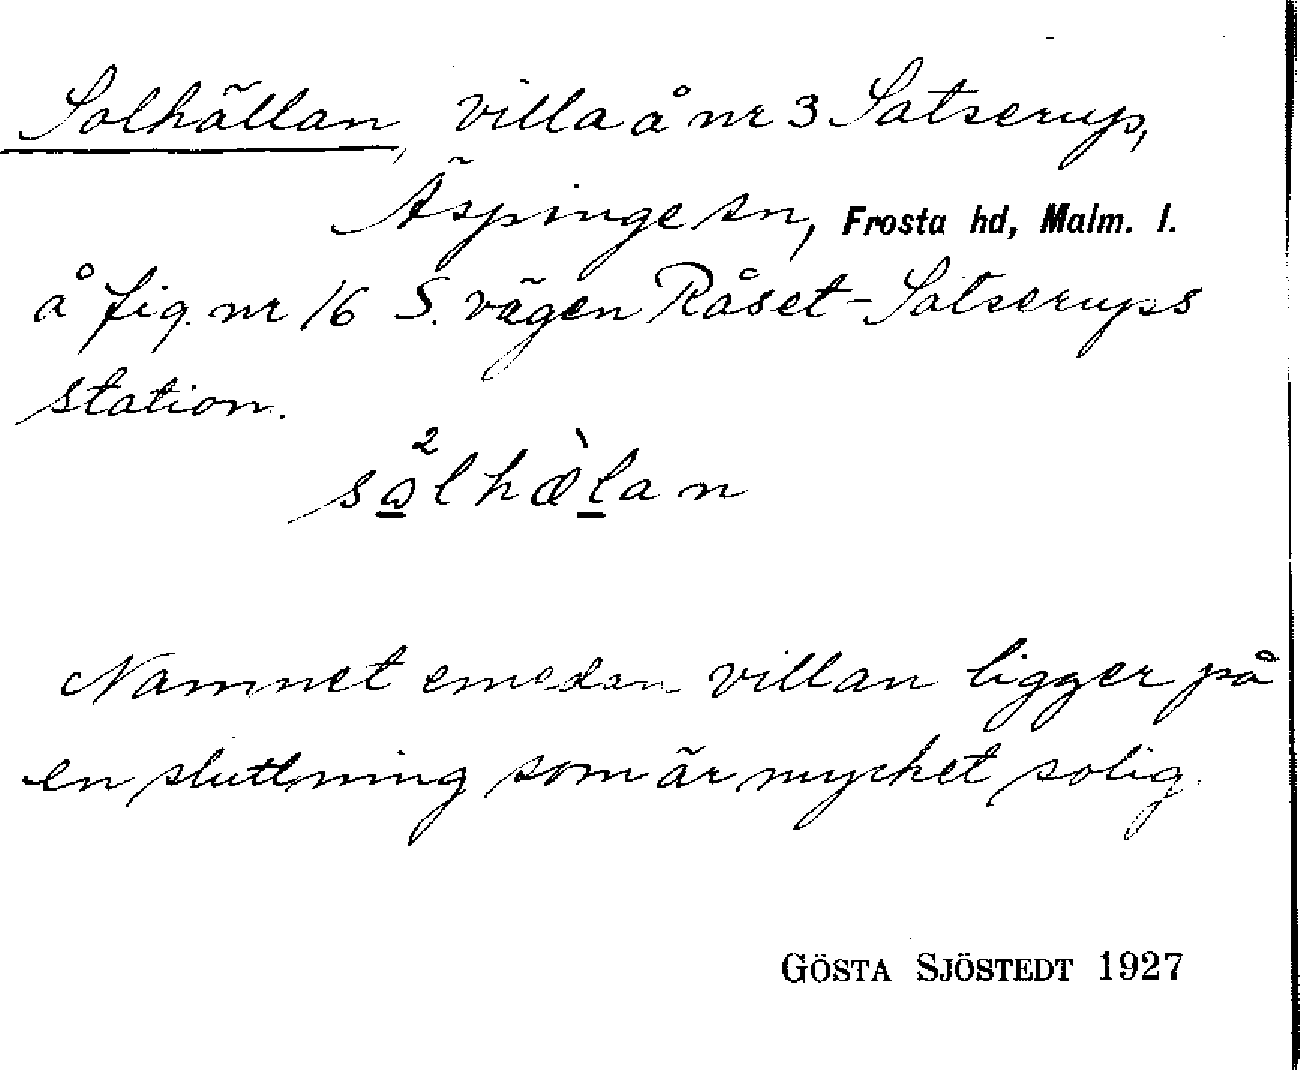 Solhällan, villa å nr 3 Satserup,
Äspinge sn, Frosta hd, Malm. l.
å fig. nr 16 S. vägen Råset-Satserups
station.
sω̲²lhæ̀l̲an
Namnet emedan villan ligger på
en sluttning som är mycket solig.
GÖSTA SJÖSTEDT 1927